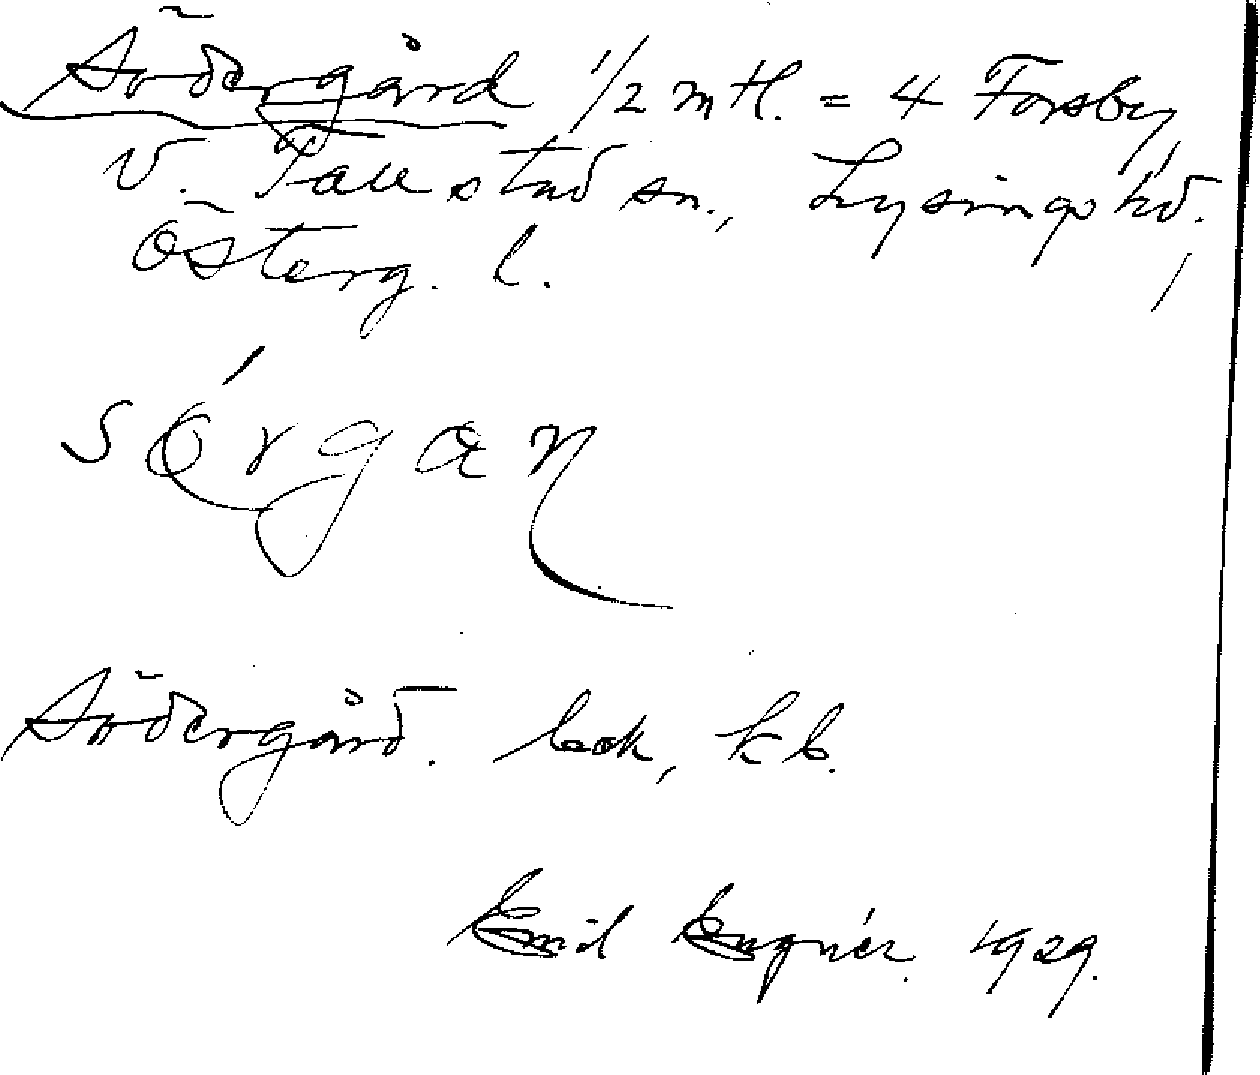 Södergård 1/2 mtl. = 4 Forsby,
V. Tollstad sn., Lysings hd.,
Österg. l.
sörgan
Södergård. bok, kb.
Emil Engnér. 1929.